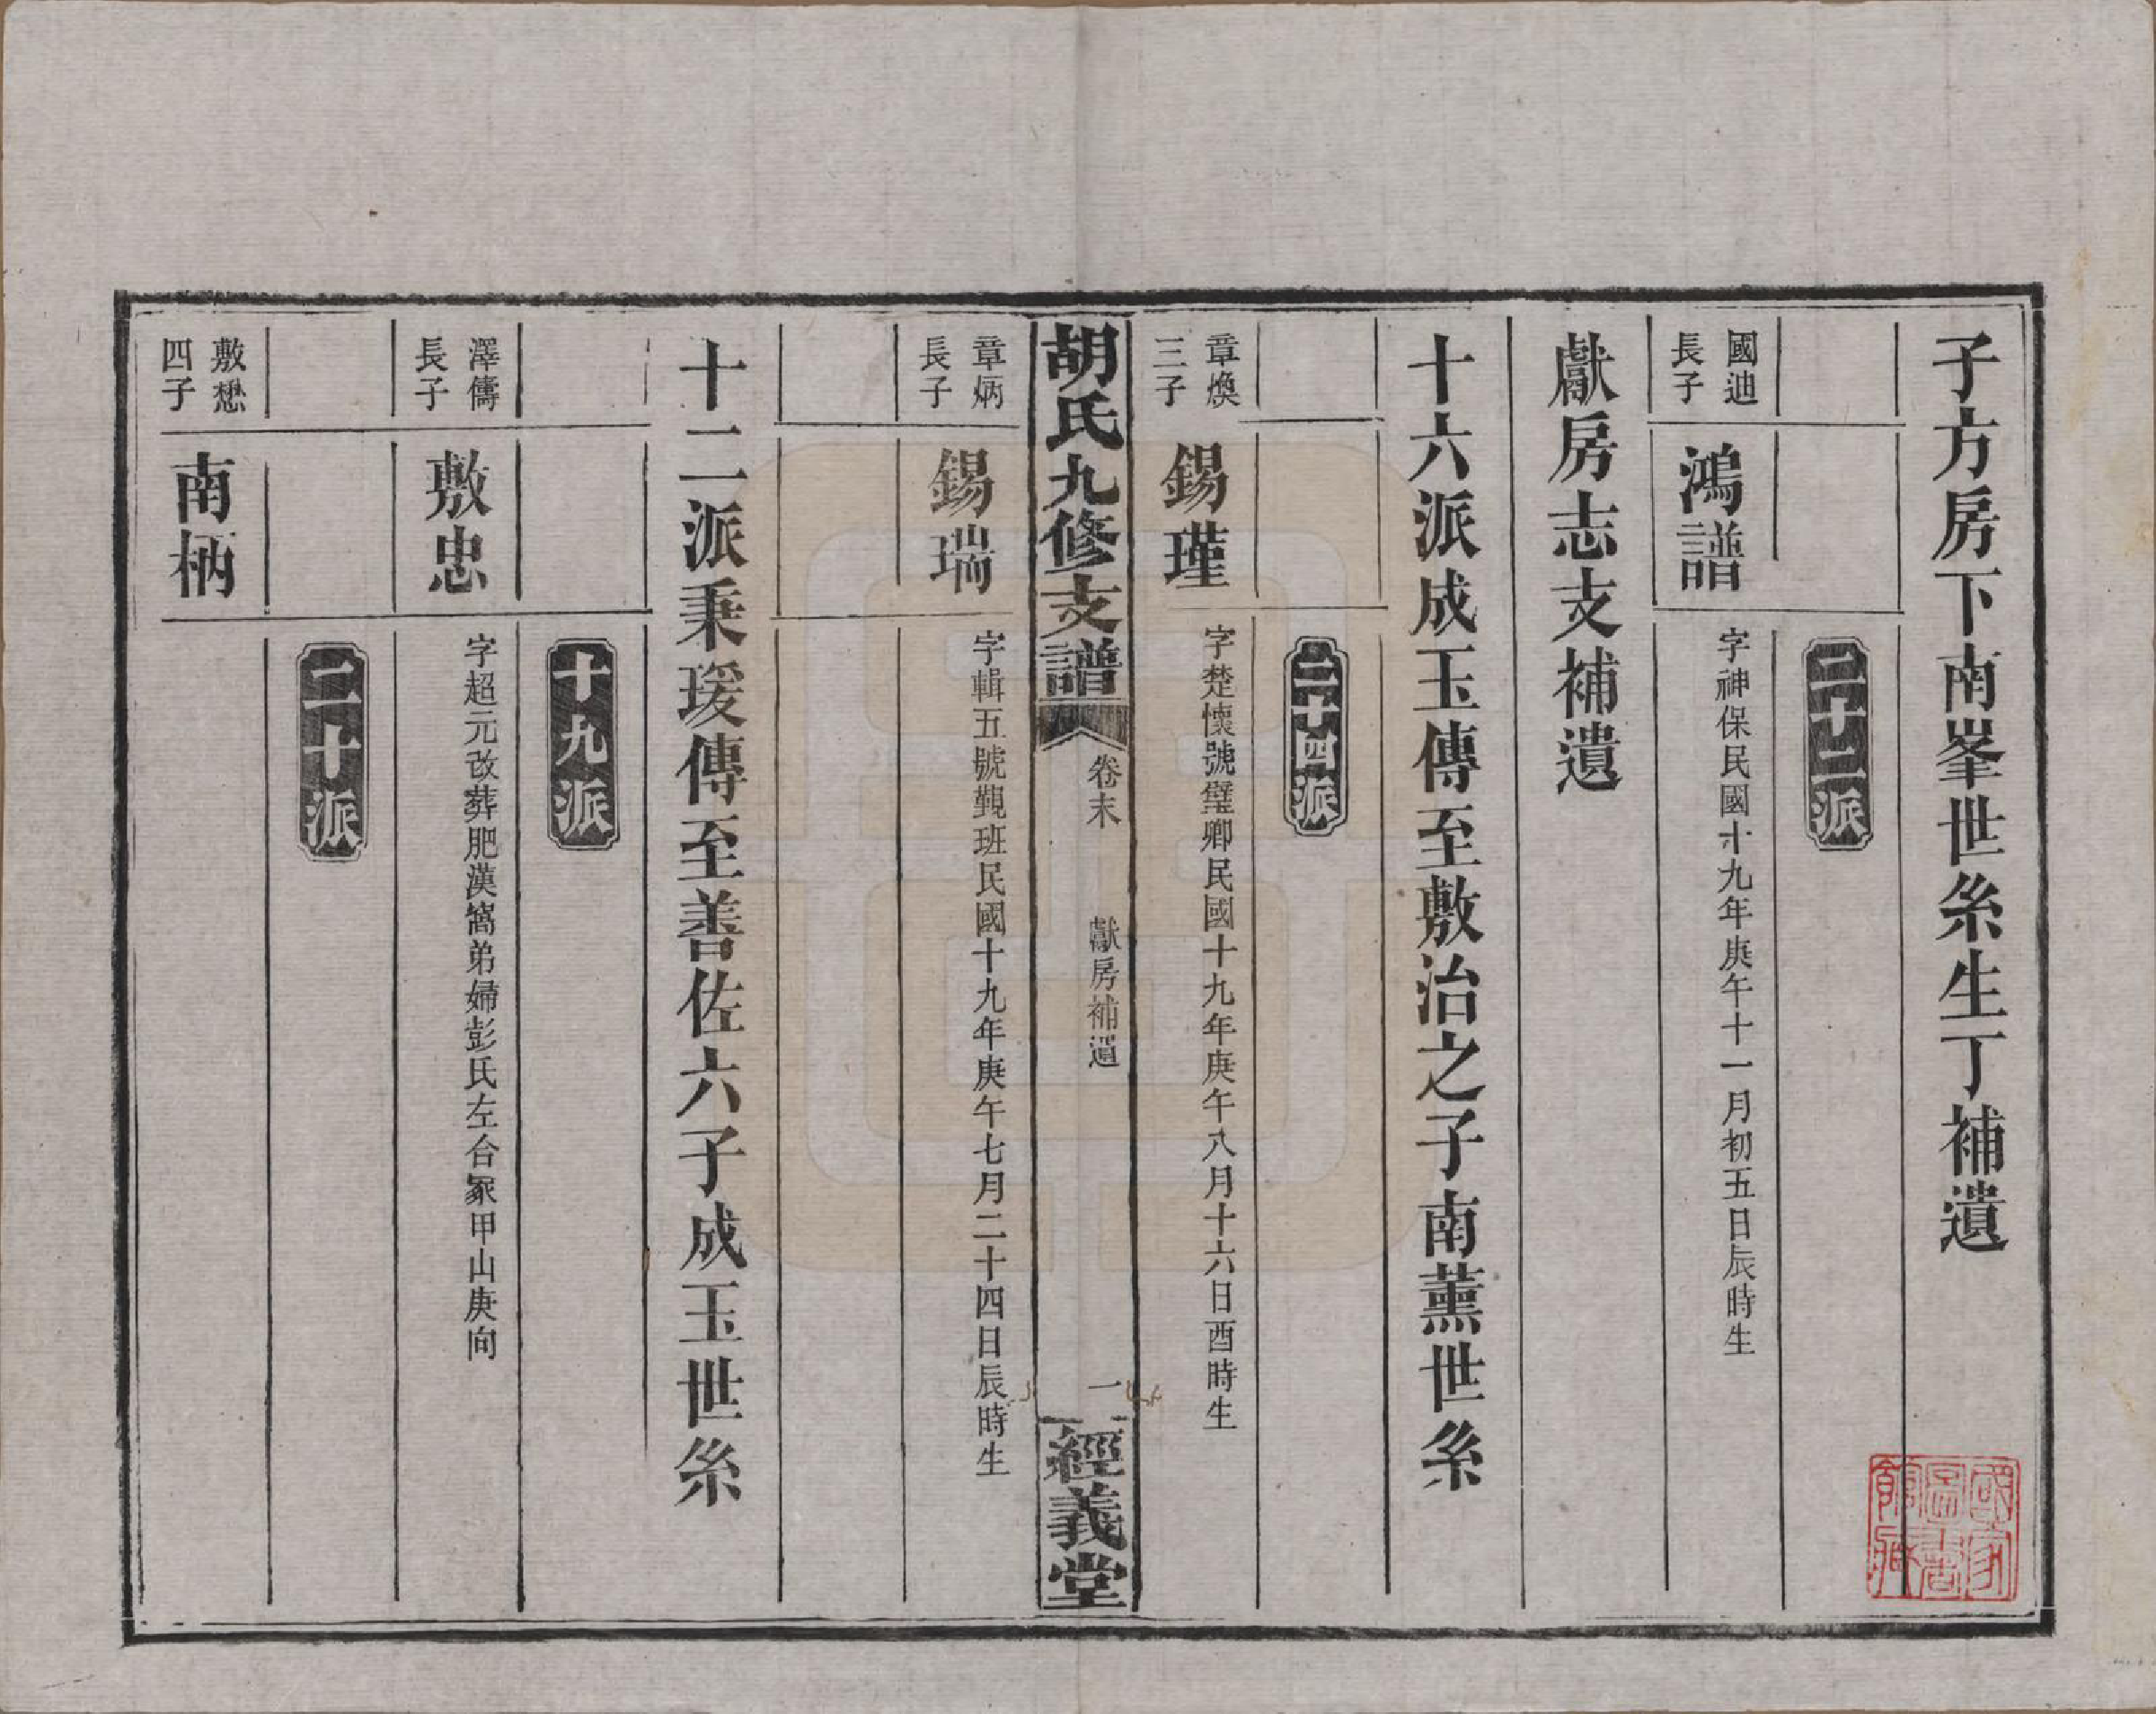 子方房下南峯世糸生丁補遺
二十二派
國迪
長子
鴻譜
字神保民國十九年庚午十一月初五日辰時生
獻房志支補遺
十六派成玉傳至敷治之子南薰世糸
二十四派
章煥
三子
錫瑾
字楚懷號璧卿民國十九年庚午八月十六日酉時生
胡氏九修支譜
卷末
獻房補遺
一
經義堂
章炳
長子
錫瑞
字輯五號覲班民國十九年庚午七月二十四日辰時生
十二派秉瑗傳至善佐六子成玉世糸
十九派
澤儔
長子
敷忠
字超元改葬肥漢窩弟婦彭氏左合冢甲山庚向
二十派
敷懋
四子
南柄
國家圖書館藏